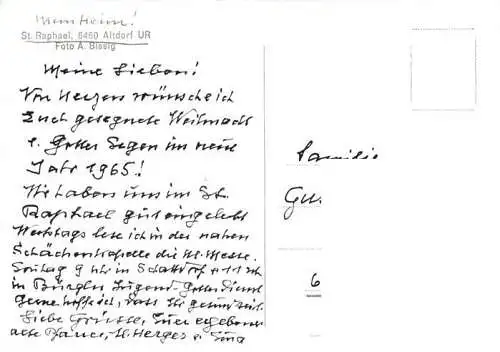 Mein Heim!
St. Raphael, 6460 Altdorf UR
Foto A. Bissig
Meine Lieben!
Von Herzen wünsche ich
Euch gesegnete Weihnacht
u. Gottes Segen im neuen
Jahr 1965!
Wir haben uns im St.
Raphael gut eingelebt
Werktags lese ich in der nahen
Schächenkapelle die hl. Messe.
Sonntag 9 Uhr in Schattdorf + 11 Uhr
in Bürglen Jugend-Gottesdienst
Gerne hoffe ich, dass Ihr gesund seid.
Liebe Grüsse, Euer ergebener
alte Pfarrer, H. Herger
Familie
Gu.
6